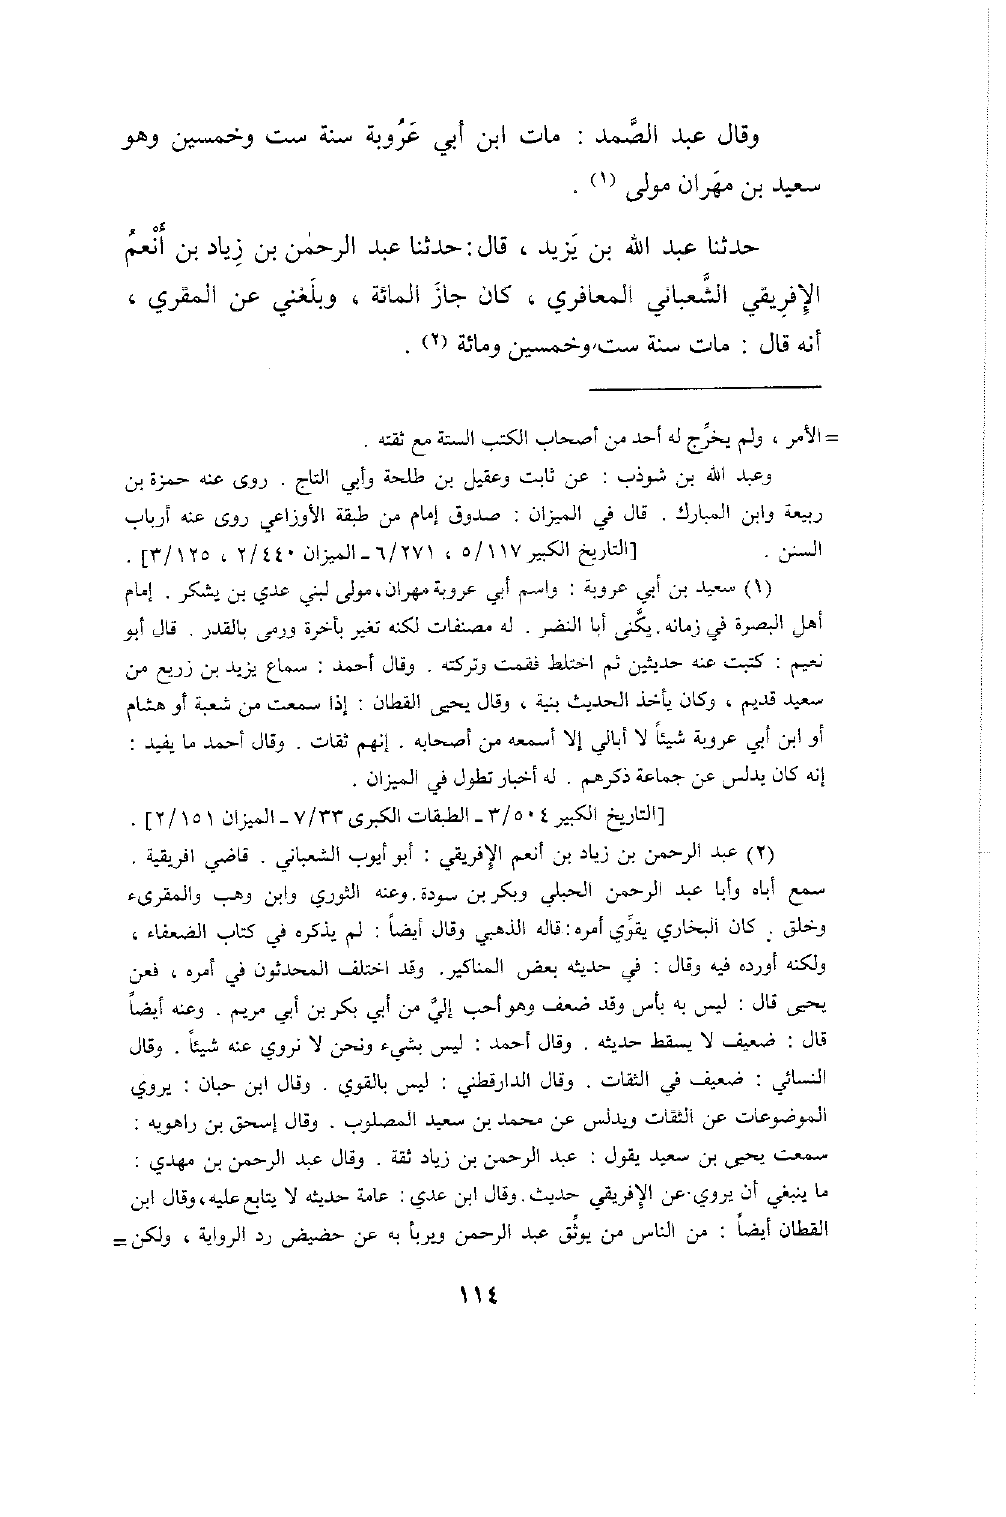 وقال عبد الصَّمد : مات ابن أبي عَرُوبة سنة ست وخمسين وهو
سعيد بن مهَران مولى (١) .
حدثنا عبد الله بن يَزيد ، قال : حدثنا عبد الرحمٰن بن زِياد بن أَنْعمُ
الإفرِيقي الشَّعباني المعافري ، كان جازَ المائة ، وبلَغني عن المقري ،
أنه قال : مات سنة ست وخمسين ومائة (٢) .
= الأمر ، ولم يخرِّج له أحد من أصحاب الكتب الستة مع ثقته .
وعبد الله بن شوذب : عن ثابت وعقيل بن طلحة وأبي التاج . روى عنه حمزة بن
ربيعة وابن المبارك . قال في الميزان : صدوق إمام من طبقة الأوزاعي روى عنه أرباب
السنن . [التاريخ الكبير ٥/١١٧ ، ٦/٢٧١ ـ الميزان ٢/٤٤٠ ، ٣/١٢٥] .
(١) سعيد بن أبي عروبة : واسم أبي عروبة مهران، مولى لبني عدي بن يشكر . إمام
أهل البصرة في زمانه . يكَّنى أبا النضر . له مصنفات لكنه تغير بأخرة ورمى بالقدر . قال أبو
نعيم : كتبت عنه حديثين ثم اختلط فقمت وتركته . وقال أحمد : سماع يزيد بن زريع من
سعيد قديم ، وكان يأخذ الحديث بنية ، وقال يحيى القطان : إذا سمعت من شعبة أو هشام
أو ابن أبي عروبة شيئاً لا أبالي إلا أسمعه من أصحابه . إنهم ثقات . وقال أحمد ما يفيد :
إنه كان يدلس عن جماعة ذكرهم . له أخبار تطول في الميزان .
[التاريخ الكبير ٣/٥٠٤ ـ الطبقات الكبرى ٧/٣٣ ـ الميزان ٢/١٥١] .
(٢) عبد الرحمن بن زياد بن أنعم الإفريقي : أبو أيوب الشعباني . قاضي افريقية .
سمع أباه وأبا عبد الرحمن الحبلي وبكر بن سودة . وعنه الثوري وابن وهب والمقرىء
وخلق . كان البخاري يقوِّي أمره : قاله الذهبي وقال أيضاً : لم يذكره في كتاب الضعفاء ،
ولكنه أورده فيه وقال : في حديثه بعض المناكير . وقد اختلف المحدثون في أمره ، فعن
يحيى قال : ليس به بأس وقد ضعف وهو أحب إليّ من أبي بكر بن أبي مريم . وعنه أيضاً
قال : ضعيف لا يسقط حديثه . وقال أحمد : ليس بشيء ونحن لا نروي عنه شيئاً . وقال
النسائي : ضعيف في الثقات . وقال الدارقطني : ليس بالقوي . وقال ابن حبان : يروي
الموضوعات عن الثقات ويدلس عن محمد بن سعيد المصلوب . وقال إسحق بن راهويه :
سمعت يحيى بن سعيد يقول : عبد الرحمن بن زياد ثقة . وقال عبد الرحمن بن مهدي :
ما ينبغي أن يروي عن الإفريقي حديث . وقال ابن عدي : عامة حديثه لا يتابع عليه ، وقال ابن
القطان أيضاً : من الناس من يوثِّق عبد الرحمن ويربأ به عن حضيض رد الرواية ، ولكن =
١١٤